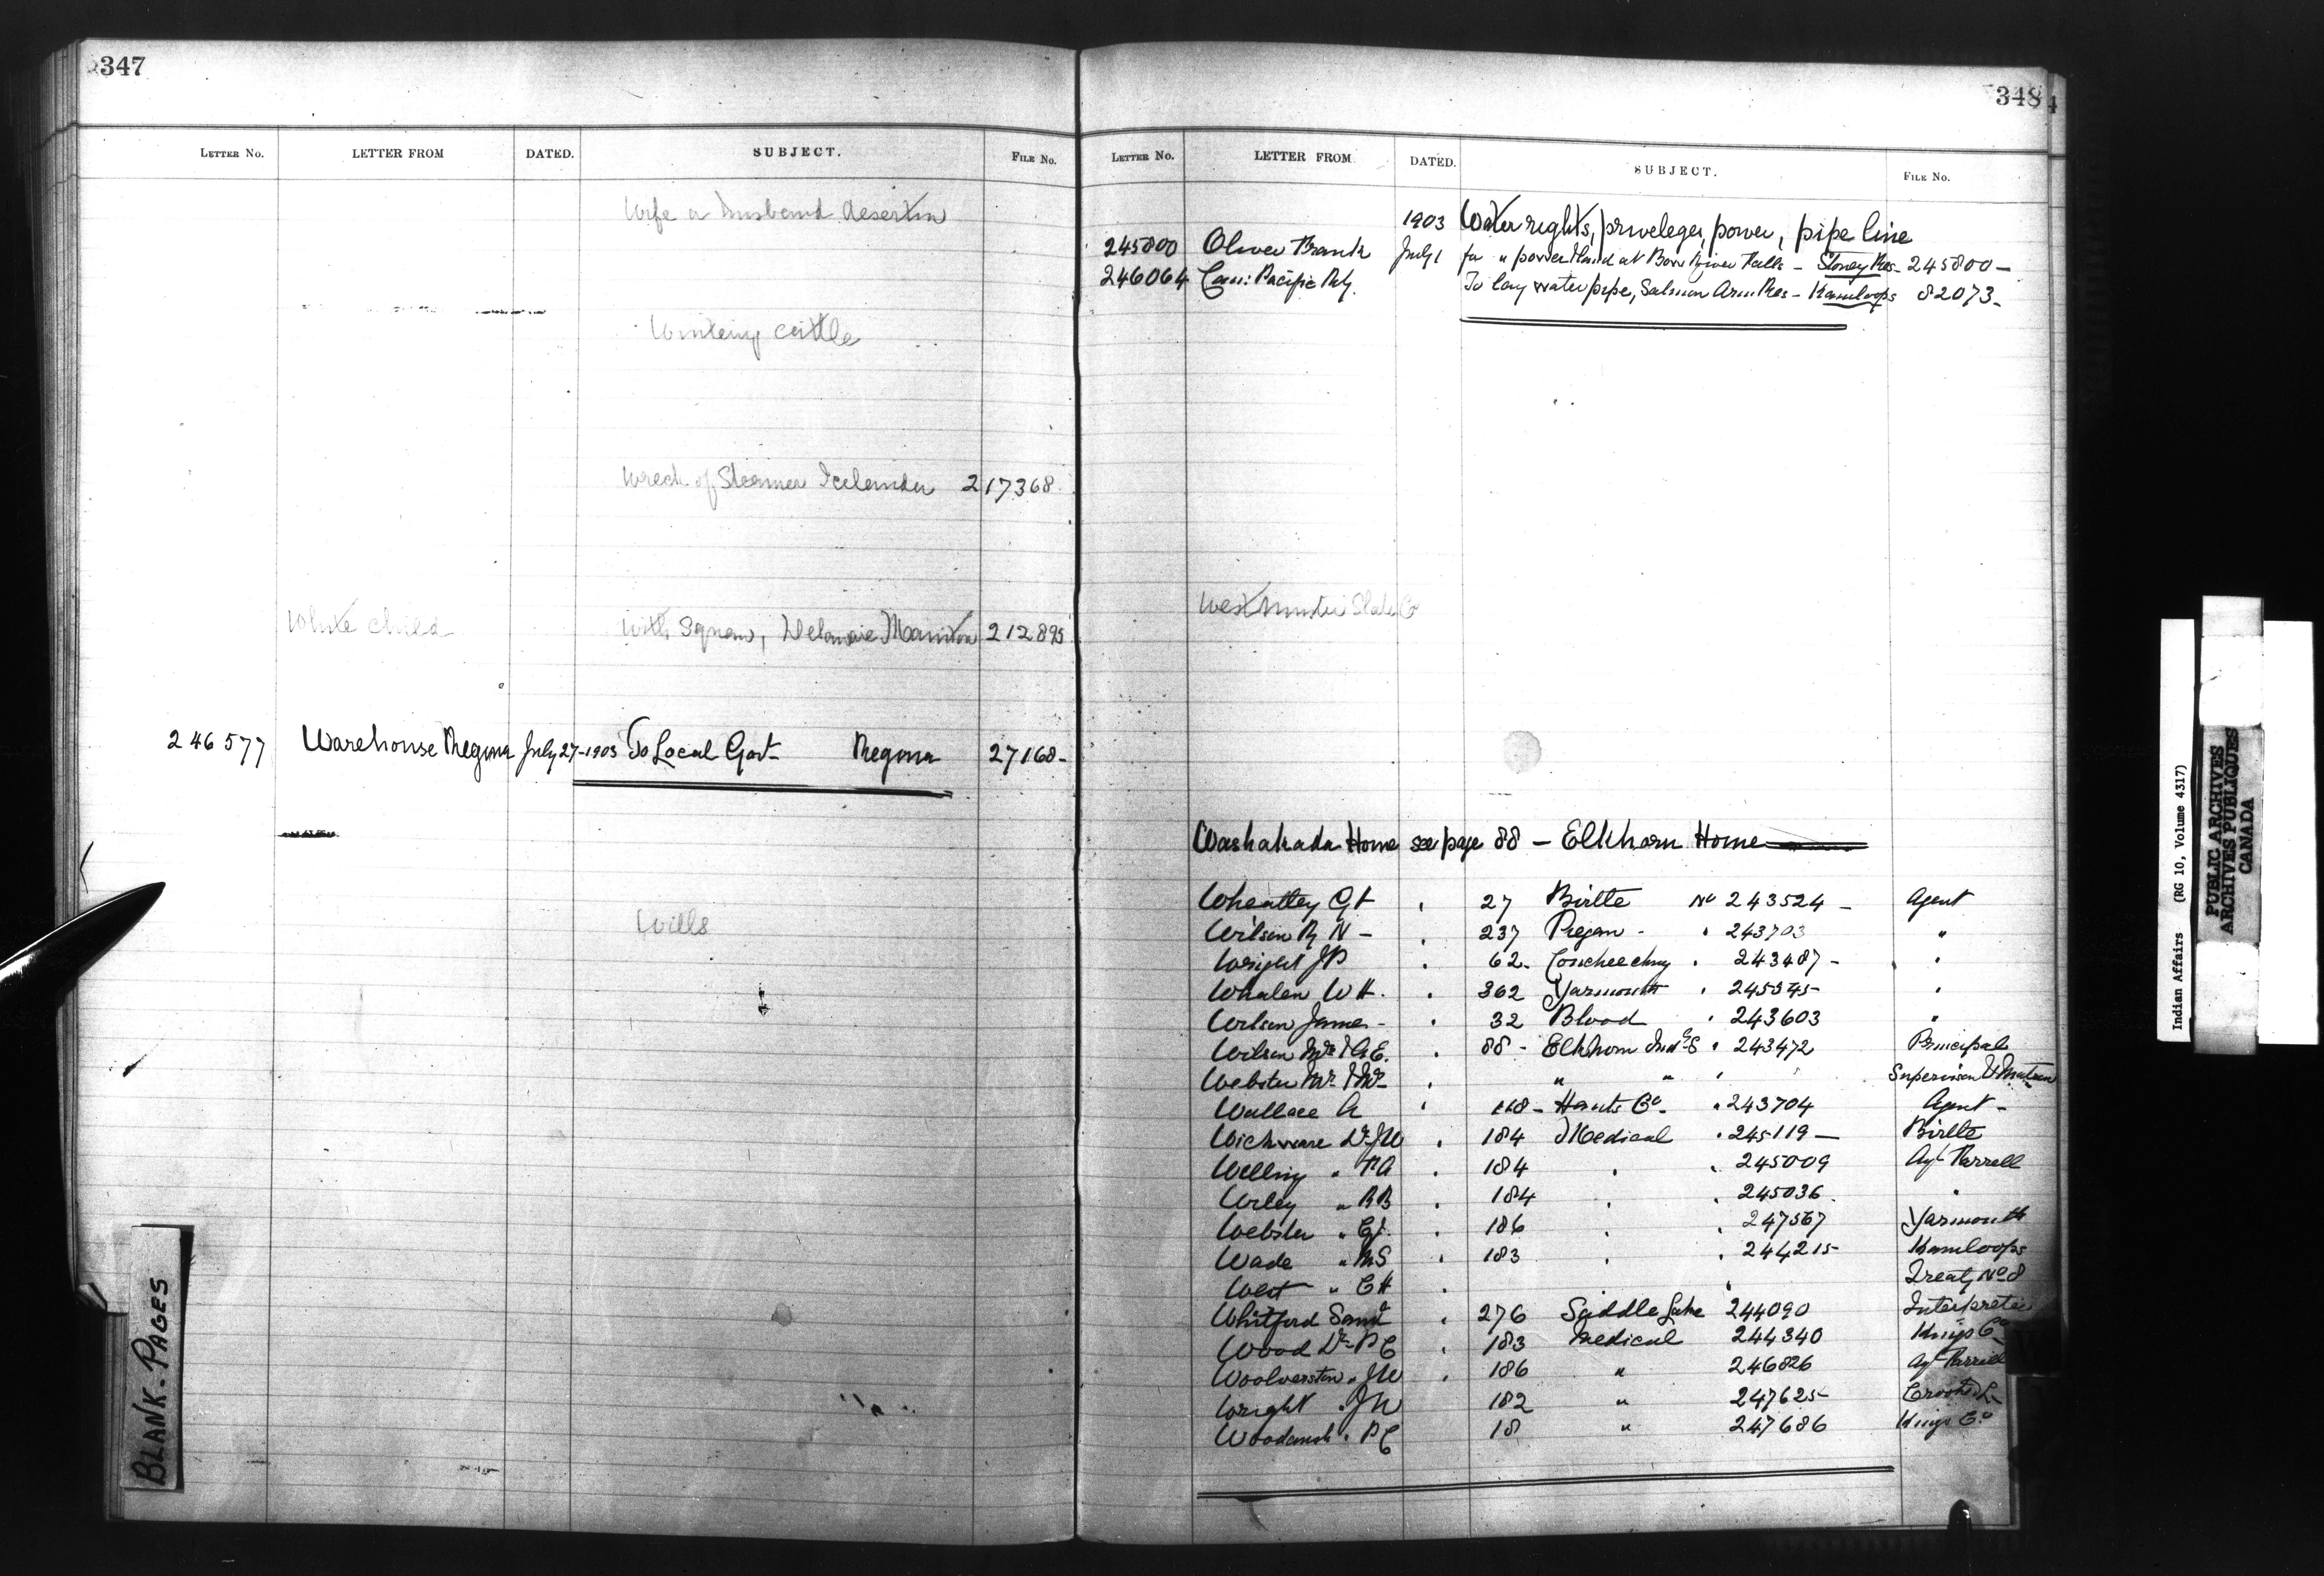 347
LETTER NO. LETTER FROM DATED. SUBJECT. FILE NO.
Wife or husband desertion
Wintering cattle
Wreck of Steamer Icelander 217368
White child with Squaw, Delamaie Manitou 212895
246577 Warehouse Regina July 27-1903 To Local Govt Regina 27168-
Wills
BLANK-PAGES
348
LETTER NO. LETTER FROM DATED. SUBJECT. FILE NO.
1903 Water rights, priveleges, power, pipe line
245800 Oliver Frank July 1 for " power &land at Bow River Falls - Stoney Res- 245800-
246064 Can: Pacific Rly. To lay water pipe, Salmon Arm Res - Kamloops 82073-
Westminster Slate Co
Washakada Home see page 88 - Elkhorn Home
Wheatley G H 27 Birtle No 243524 - Agent
Wilson R N - 237 Piegan - " 243703 "
Wright J P 62 - Touchwood " 243487 - "
Whalen W H. 362 Yarmouth " 245345 "
Wilson James - 32 Blood " 243603 "
Wilson Mr & A E. 88 - Elkhorn Ind. S " 243472 Principal
Webster Mr & Mrs " " Supervisor & Matron
Wallace A 168 - Hants Co. " 243704 Agent -
Wickware Dr J W 184 Medical " 245119 - Birtle
Welling " P A 184 " " 245009 Agt Farrell
Wiley " R B 184 " " 245036 "
Webster " C J. 186 " " 247567 Yarmouth
Wade " M S 183 " " 244215 Kamloops
West " C H " Treaty No 8
Whitford Saml 276 Saddle Lake 244090 Interpreter
Wood Dr P C 183 Medical 244340 Kings Co
Woolverton " J W 186 " 246826 Agt Farrell
Wright " J W 182 " 247625 Crooked L.
Woodward " P C 18 " 247686 Kings Co
Indian Affairs (RG 10, Volume 4317)
PUBLIC ARCHIVES
ARCHIVES PUBLIQUES
CANADA